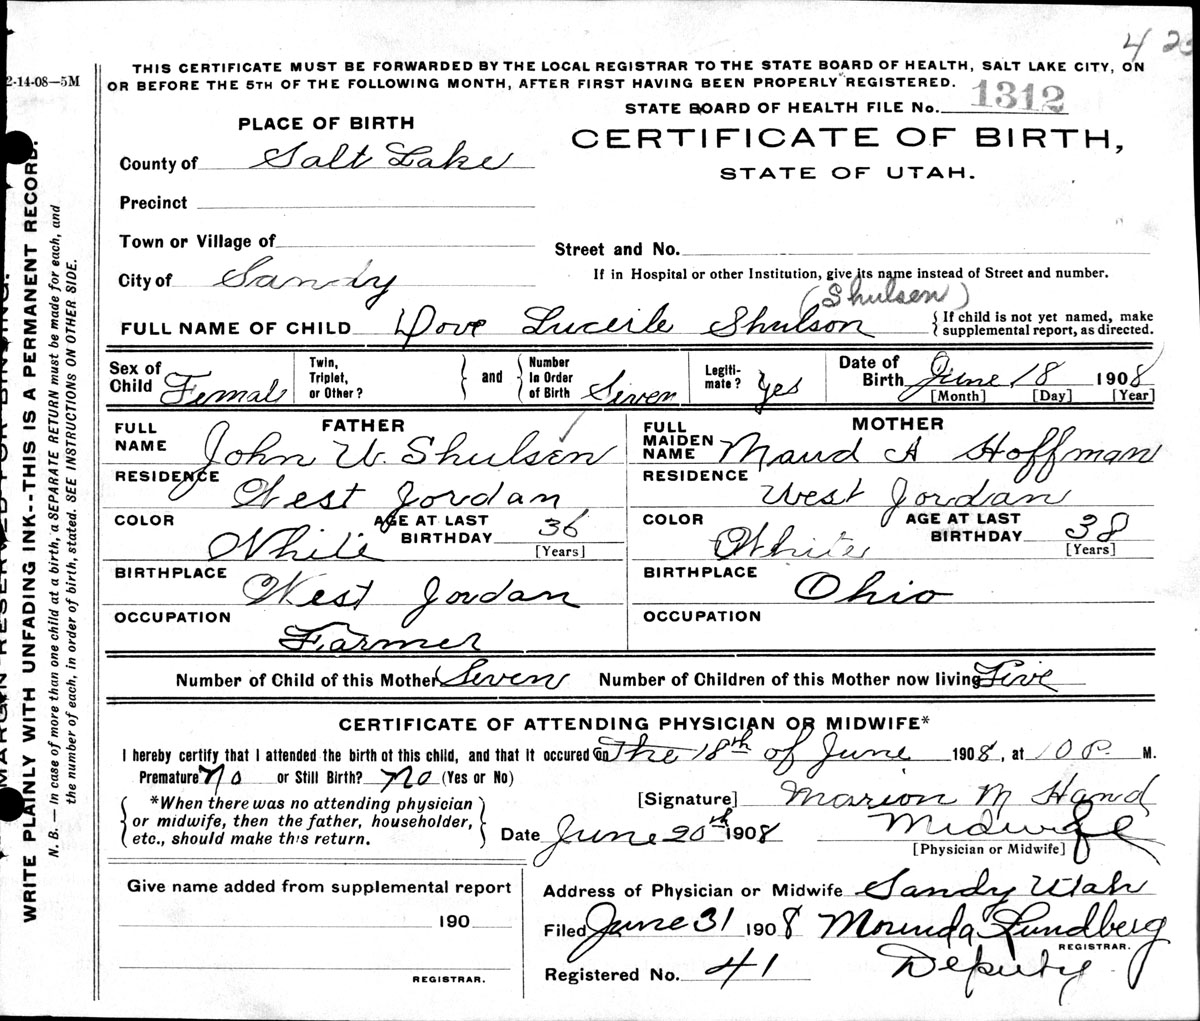 4 23
2-14-08—5M
THIS CERTIFICATE MUST BE FORWARDED BY THE LOCAL REGISTRAR TO THE STATE BOARD OF HEALTH, SALT LAKE CITY, ON
OR BEFORE THE 5TH OF THE FOLLOWING MONTH, AFTER FIRST HAVING BEEN PROPERLY REGISTERED.
STATE BOARD OF HEALTH FILE No. 1312
PLACE OF BIRTH
CERTIFICATE OF BIRTH,
STATE OF UTAH.
County of Salt Lake
Precinct
Town or Village of
Street and No.
City of Sandy
If in Hospital or other Institution, give its name instead of Street and number.
(Shulsen)
FULL NAME OF CHILD Dove Lucerle Shulson
{ If child is not yet named, make
{ supplemental report, as directed.
Sex of Child Female
Twin, Triplet, or Other? } and { Number In Order of Birth Seven
Legiti-mate? Yes
Date of Birth June 18 1908
[Month] [Day] [Year]
FATHER
FULL NAME John W. Shulsen
RESIDENCE West Jordan
COLOR White AGE AT LAST BIRTHDAY 36 [Years]
BIRTHPLACE West Jordan
OCCUPATION Farmer
MOTHER
FULL MAIDEN NAME Maud A Hoffman
RESIDENCE West Jordan
COLOR White AGE AT LAST BIRTHDAY 38 [Years]
BIRTHPLACE Ohio
OCCUPATION
Number of Child of this Mother Seven Number of Children of this Mother now living Five
CERTIFICATE OF ATTENDING PHYSICIAN OR MIDWIFE*
I hereby certify that I attended the birth of this child, and that it occured on The 18th of June 1908, at 10 P. M.
Premature No or Still Birth? No (Yes or No)
{ *When there was no attending physician }
{ or midwife, then the father, householder, }
{ etc., should make this return. }
[Signature] Marion M Hand
Midwife
Date June 20th 1908
[Physician or Midwife]
Give name added from supplemental report
190
REGISTRAR.
Address of Physician or Midwife Sandy Utah
Filed June 31 1908 Morinda Lundberg
REGISTRAR.
Registered No. 41 Deputy
MARGIN RESERVED FOR BINDING.
WRITE PLAINLY WITH UNFADING INK--THIS IS A PERMANENT RECORD.
N. B. — In case of more than one child at a birth, a SEPARATE RETURN must be made for each, and
the number of each, in order of birth, stated. SEE INSTRUCTIONS ON OTHER SIDE.